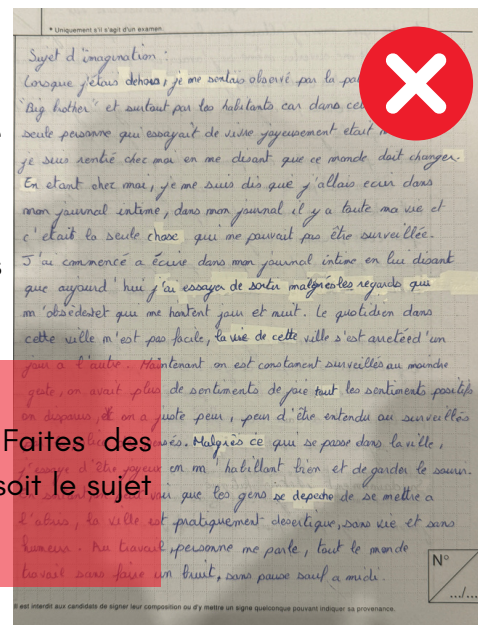 * Uniquement s'il s'agit d'un examen.
Sujet d'imagination.
Lorsque j'étais dehors, je me sentais observé par la
"Big Brother" et surtout par les habitants car dans
seule personne qui essayait de vivre joyeusement etait
je suis rentré chez moi en me disant que ce monde doit changer.
En etant chez moi, je me suis dis que j'allais ecrir dans
mon journal intime, dans mon journal il y a toute ma vie et
c'etait la seule chose qui me pouvait pas être surveillée.
J'ai commencé a écrire dans mon journal intime en lui disant
que aujourd'hui j'ai essayer de sortir malgrés les regards qui
m'obsédedet qui me hantent jour et nuit. Le quotidien dans
cette ville m'est pas facile, la vie de cette ville s'est arretéed'un
jour a l'autre. Maintenant on est constament surveillés au moindre
geste, on avait plus de sentiments de joie tout les sentiments positifs
on disparus, et on a juste peur, peur d'être entendu ou surveillés
Faites des
Malgrès ce qui se passe dans la ville,
j'essaye d'être joyeux en m'habillant bien et de garder le sourir.
soit le sujet
voir que les gens se depeche de se mettre a
l'abris, la ville est pratiquement desertique, sans vie et sans
humeur. Au travail, personne me parle, tout le monde
travail sans faire un bruit, sans pause sauf a midi.
N°
.../...
Il est interdit aux candidats de signer leur composition ou d'y mettre un signe quelconque pouvant indiquer sa provenance.